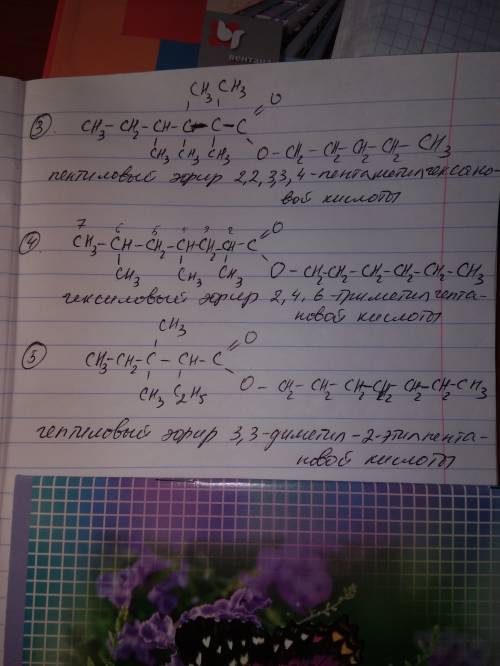 вентана
CH₃ CH₃
3. CH₃-CH₂-CH-C-C-C=O
CH₃ CH₃ CH₃ O-CH₂-CH₂-CH₂-CH₂-CH₃
пентиловый эфир 2,2,3,3,4-пентаметилгексано-
вой кислоты
7 6 5 4 3 2
4. CH₃-CH-CH₂-CH-CH₂-CH-C=O
CH₃ CH₃ CH₃ O-CH₂-CH₂-CH₂-CH₂-CH₂-CH₃
гексиловый эфир 2,4,6-триметилгепта-
новой кислоты
CH₃
5. CH₃-CH₂-C-CH-C=O
CH₃ C₂H₅ O-CH₂-CH₂-CH₂-CH₂-CH₂-CH₂-CH₃
гептиловый эфир 3,3-диметил-2-этилпента-
новой кислоты